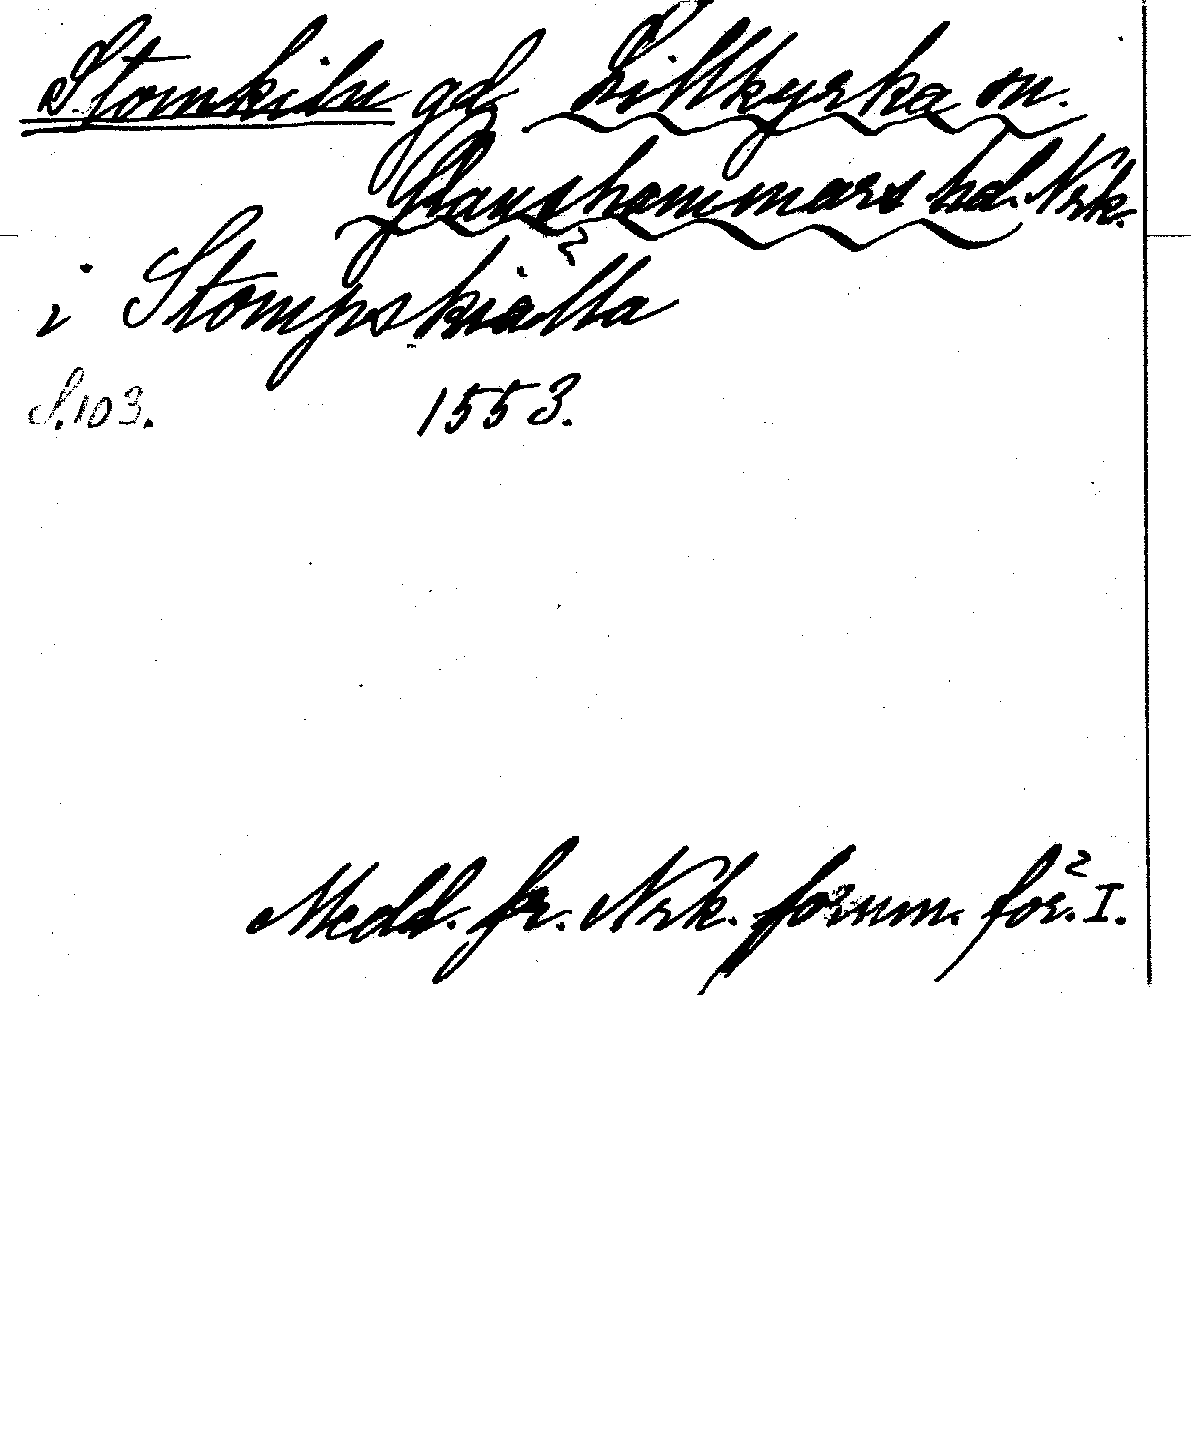 gd, Lillkyrka sn.
Glanshammars hd. Nrk.
i Stompskiälla
S.103. 1553.
Medd. fr. Nrk. fornm. för. I.